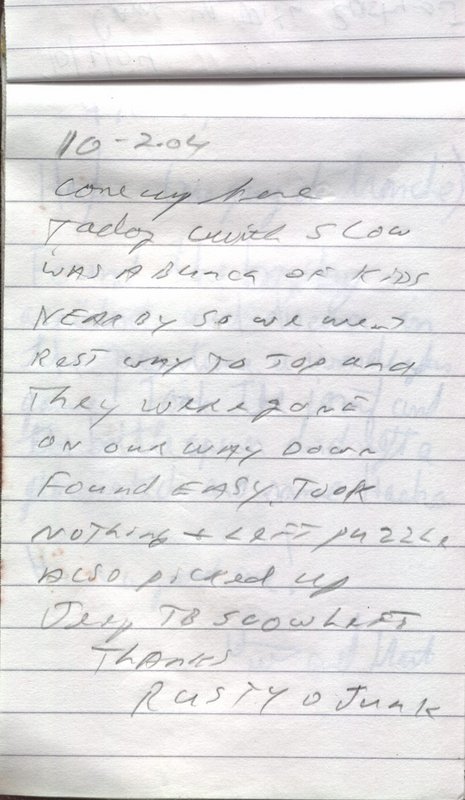 10-2.04
come up here
Today with Slow
WAS A Bunch OF KIDS
NEARBY SO we went
Rest WAY TO TOP and
They were gone
ON OUR WAY DOWN
Found EASY. TOOK
NOTHING + Left puzzle
ALSO picked up
TB SCOW LEFT
THANKS
RUSTY O Junk